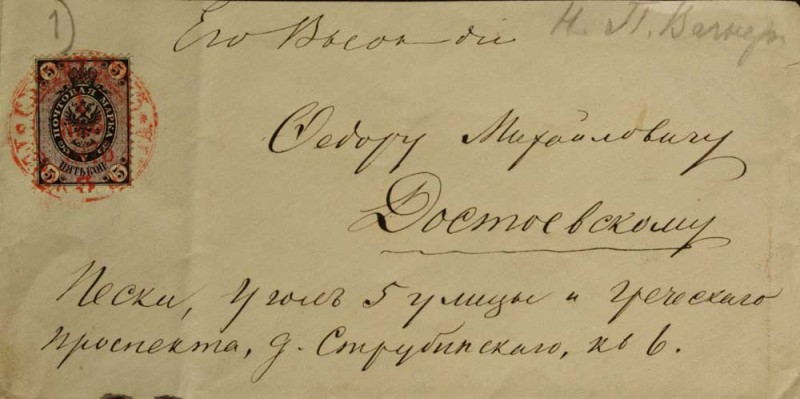 1)
Его Высок-діе
Н. П. Вагнер
5 5
ПОЧТОВАЯ МАРКА
ПЯТЬ КОП
5 5
Федору Михайловичу
Достоевскому
Пески, Уголъ 5 улицы и Греческаго
проспекта, д. Струбинскаго, кв 6.